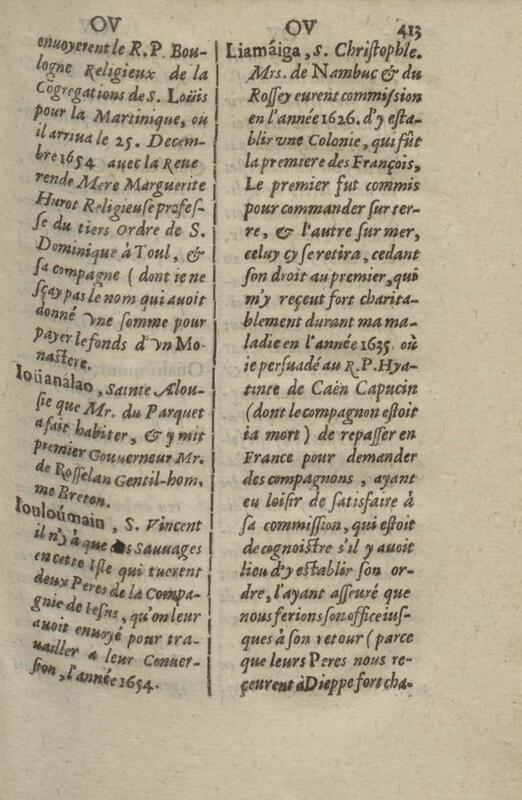 OV
enuoyerent le R. P. Bou-
logne Religieux de la
Cõgregations de S. Loüis
pour la Martinique, ou
il arriua le 25. Decem-
bre 1654 auec la Reue
rende Mere Marguerite
Hurot Religieuse profes-
se du tiers Ordre de S.
Dominique à Toul, &
sa compagne ( dont ie ne
sçay pas le nom qui auoit
donné vne somme pour
payer le fonds d'vn Mo-
nastere.
Ioüanálao, Sainte Ælou-
sie que Mr. du Parquet
a fait habiter, & y mit
premier Gouuerneur Mr.
de Rosselan Gentil-hom,
me Breton.
Iouloúmain, S. Vincent
il n'y à que des Sauvages
en cette Isle qui tuerent
deux Peres de la Compa-
gnie de Iesus, qu'on leur
auoit enuoyé pour tra-
uailler a leur Conuer-
sion, l'année 1654.
OV 413
Liamáiga, S. Christophle.
Mrs. de Nambuc & du
Rossey eurent commission
en l'année 1626. d'y esta-
blir vne Colonie, qui fût
la premiere des François,
Le premier fut commis
pour commander sur ter-
re, & l'autre sur mer,
celuy cy se retira, cedant
son droit au premier, qui
m'y reçeut fort charita-
blement durant ma ma-
ladie en l'année 1635. où
ie persuadé au R. P. Hya-
tinte de Caën Capucin
(dont le compagnon estoit
ia mort ) de repasser en
France pour demander
des compagnons, ayant
eu loisir de satisfaire à
sa commission, qui estoit
de cognoistre s'il y auoit
lieu d'y establir son or-
dre, l'ayant asseuré que
nous ferions son office ius-
ques à son retour ( parce
que leurs Peres nous re-
çeurent à Dieppe fort cha-